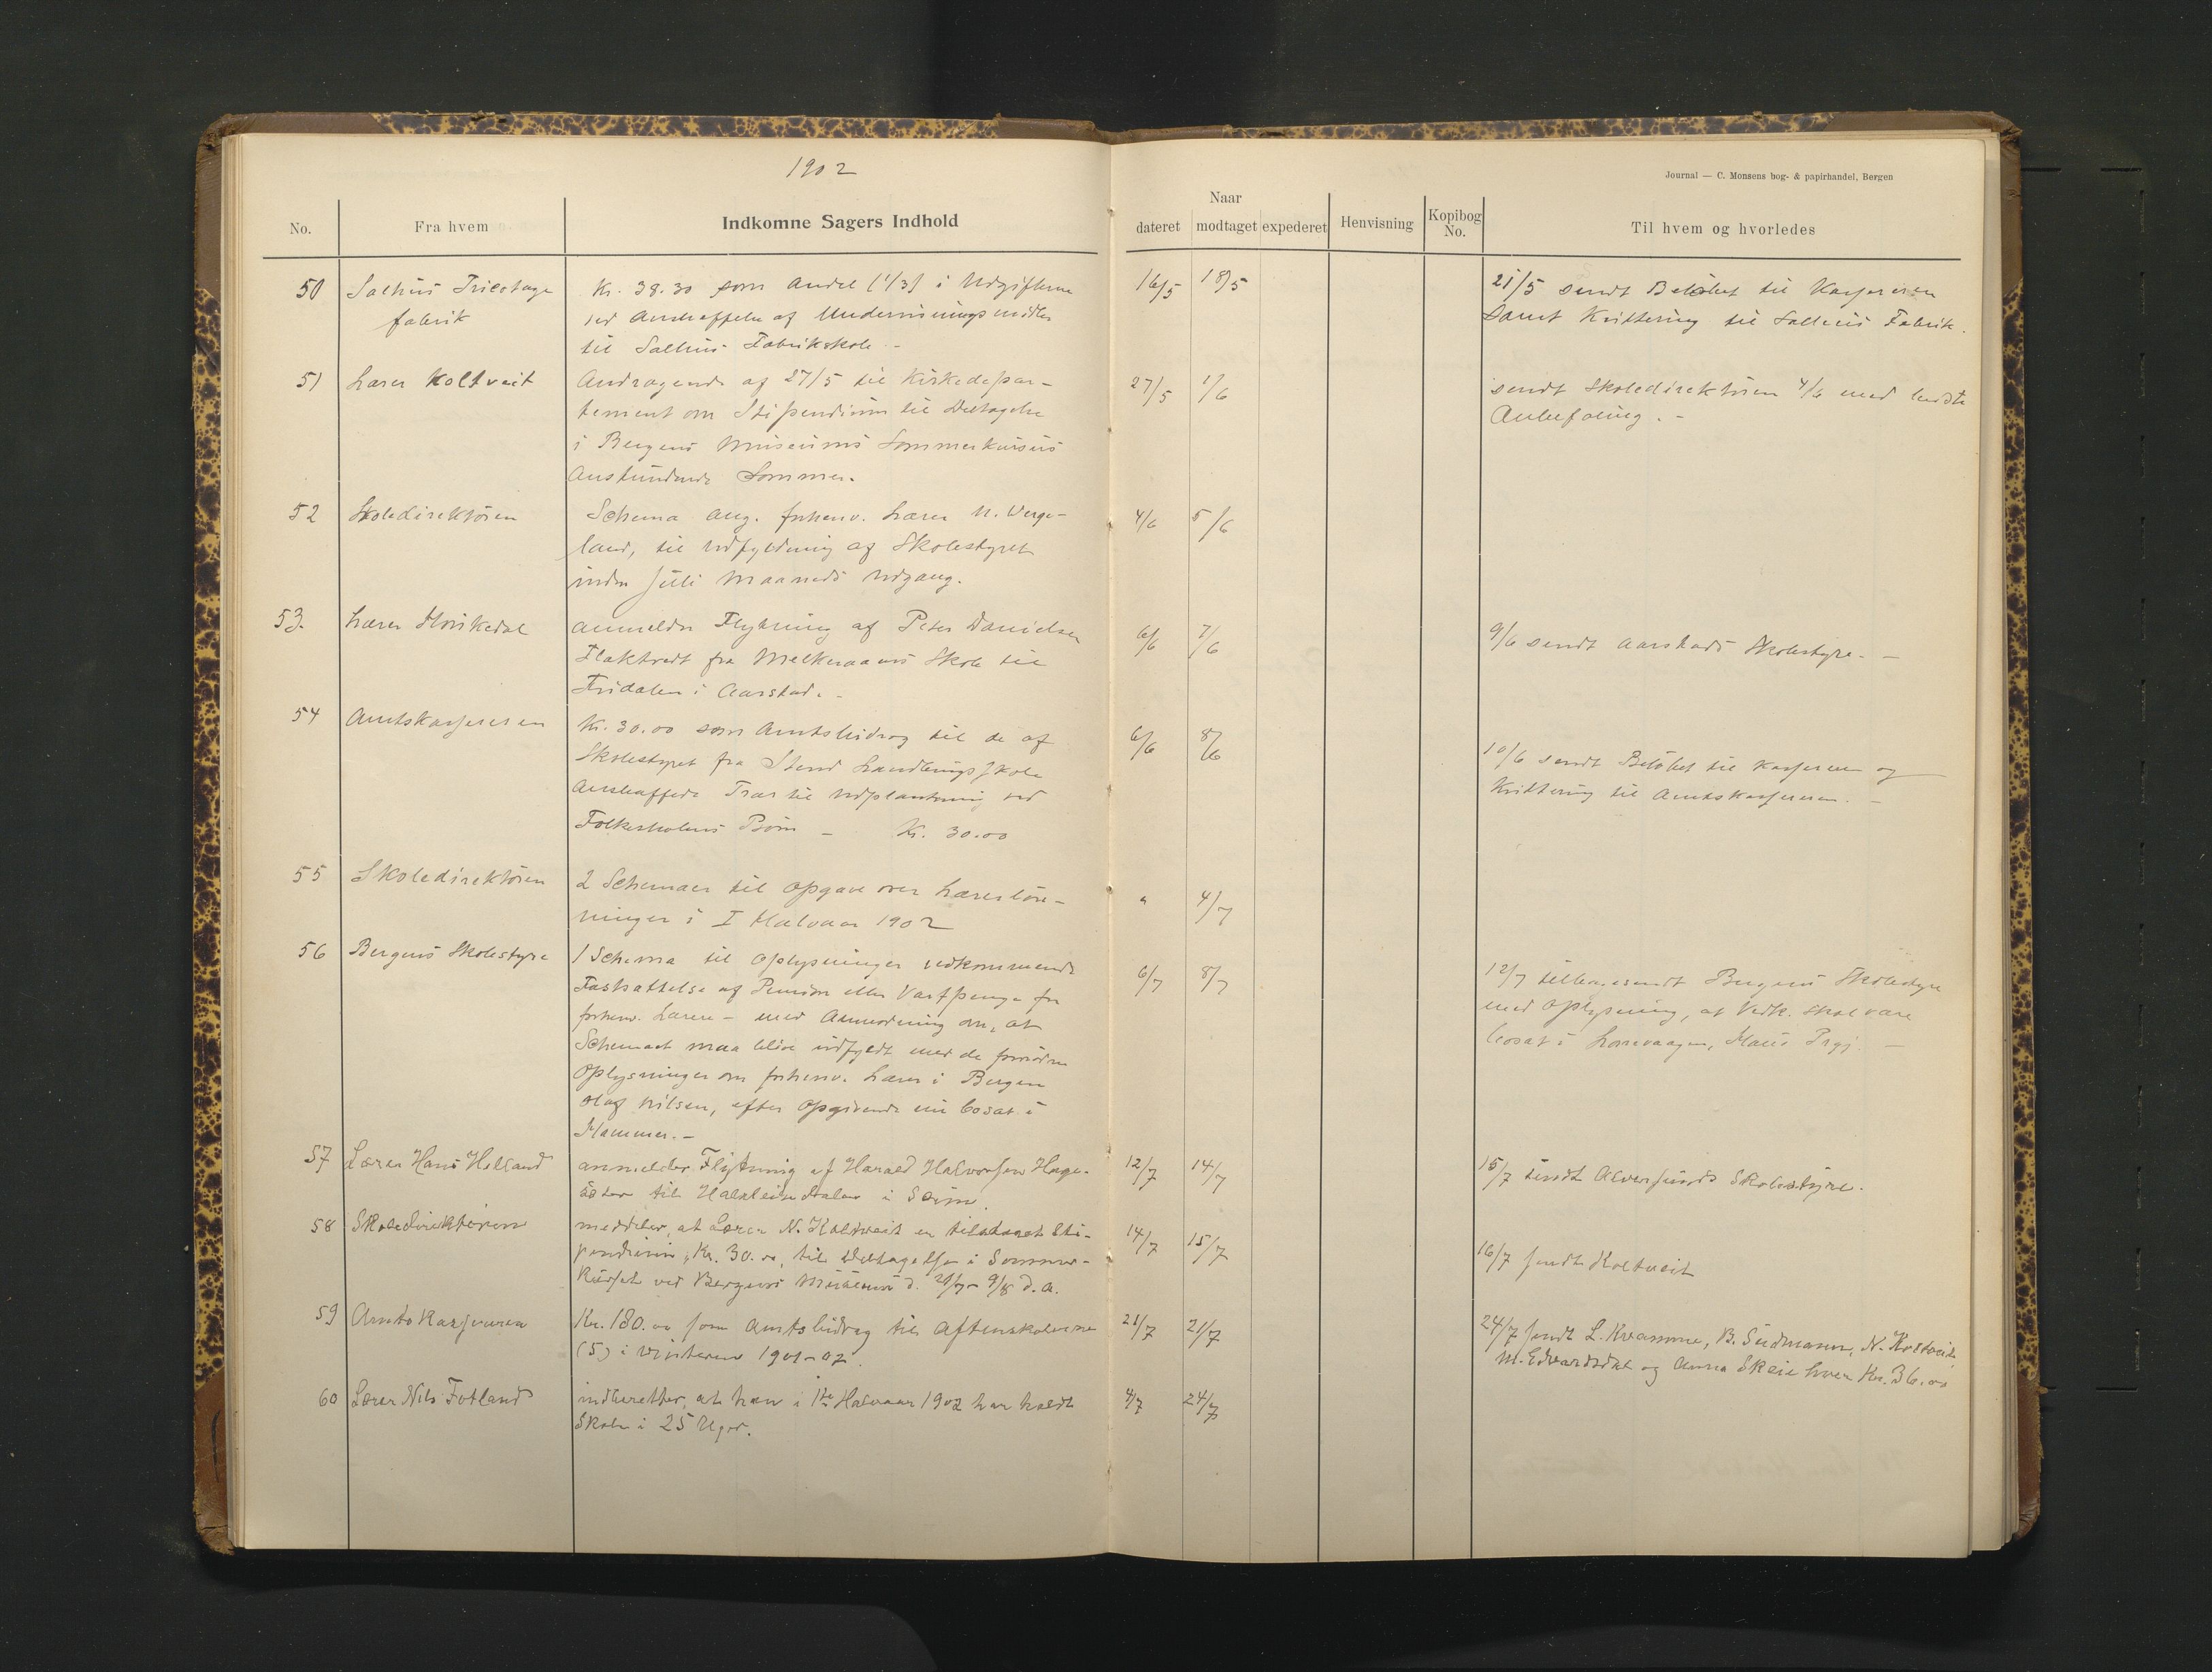 1902
Journal — C. Monsens bog- & papirhandel, Bergen
No.
Fra hvem
Indkomne Sagers Indhold
Naar
dateret modtaget expederet
Henvisning
Kopibog
No.
Til hvem og hvorledes
50 Salhus Tricotage
fabrik
Kr. 38.30 som Andel (1/3) i Udgifterne
ved Anskaffelse af Undervisningsmidler
til Salhus Fabrikskole -
16/5 18/5
21/5 sendt Beløbet til Kassereren
samt Kvittering til Salhus Fabrik.
51 Lærer Koltveit
Andragende af 27/5 til Kirkedepar-
tement om Stipendium til Deltagelse
i Bergens Museums Sommerkursus
Anstundende Sommer.
27/5 1/6
sendt Skoledirektören 4/6 med bedste
Anbefaling. -
52 Skoledirektören
Schema ang. forhenv. Lærer N. Verge-
land, til Udfyldning af Skolestyret
inden Juli Maaneds Udgang.
4/6 5/6
53. Lærer
anmelder Flytning af Peter Danielsen
fra Skole til
Fridalen i Aarstad. -
6/6 7/6
9/6 sendt Aarstads Skolestyre. -
54 Amtskassereren
Kr. 30.00 som Amtsbidrag til de af
Skolestyret fra Stend Landbrugsskole
Anskaffede Trær til Udplantning ved
Folkeskolens Börn - Kr. 30.00
6/6 8/6
10/6 sendt Beløbet til Kassereren og
Kvittering til Amtskassereren. -
55 Skoledirektören
2 Schemaer til Opgave over Lærerlön-
ninger i I Halvaar 1902
" 4/7
56 Bergens Skolestyre
1 Schema til Oplysninger vedkommende
Fastsættelse af Pension eller Vartpenge for
forhenv. Lærere - med Anmodning om, at
Schemaet maa blive udfyldt med de fornödne
Oplysninger om forhenv. Lærer i Bergen
Olaf Nilsen, efter Opgivende nu bosat i
Hammer. -
6/7 8/7
12/7 tilbagesendt Bergens Skolestyre
med Oplysning, at Vedk. skal være
bosat i Prgj. -
57 Lærer Hans Helland
anmelder Flytning af Harald Halvorsen Hage-
til i Seim.
12/7 14/7
15/7 sendt Alversunds Skolestyre.
58 Skoledirektøren
meddeler, at Lærer N. Koltveit er tilstaaet Sti-
pendium, Kr. 30.00, til Deltagelse i Sommer-
Kurset ved Bergens Museum d. 21/7 - 9/8 d. A.
14/7 15/7
16/7 sendt Koltveit
59 Amtskassereren
Kr. 180.00 som Amtsbidrag til Aftenskolerne
(5) i Vinteren 1901-02.
21/7 21/7
24/7 sendt L. Kvamme, B. Sudmann, N. Koltveit,
M. Edvardsdal og Anna Skeie hver Kr. 36.00
60 Lærer Nils Fotland
indberetter, at han i 1te Halvaar 1902 har holdt
Skole i 25 Uger.
4/7 24/7